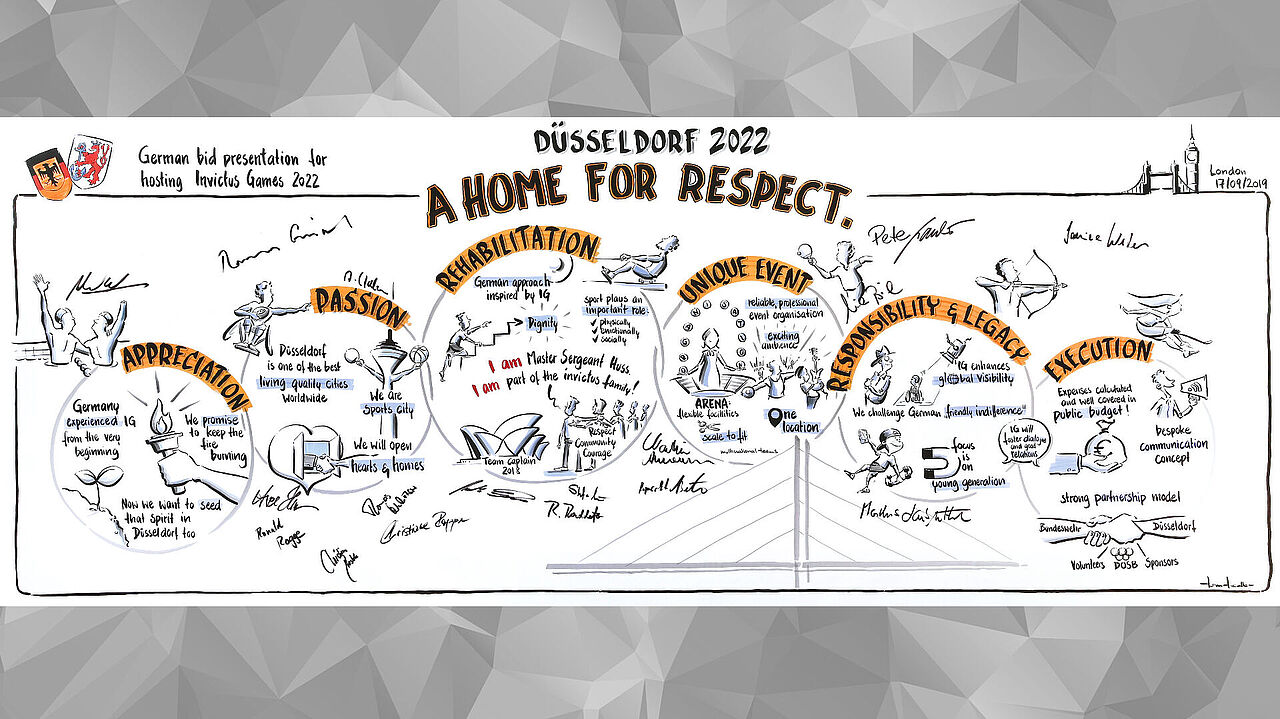 German bid presentation for
hosting Invictus Games 2022
DÜSSELDORF 2022
A HOME FOR RESPECT.
London
17/09/2019
APPRECIATION
Germany
experienced IG
from the very
beginning
We promise
to keep the
fire
burning
Now we want to seed
that spirit in
Düsseldorf too
PASSION
Düsseldorf
is one of the best
living quality cities
worldwide
We are
sports city
We will open
hearts & homies
REHABILITATION
German approach
inspired by IG
Dignity
sport plays an
important role:
physically
emotionally
socially
I am Master Sergeant Huss
I am part of the invictus family!
Team captain
2018
Respect
Community
Courage
UNIQUE EVENT
reliable, professional
event organisation
exciting
ambience
ARENA:
flexible facilities
scale to fit
multinational teams
One
location
RESPONSIBILITY & LEGACY
IG enhances
global visibility
We challenge German "friendly indifference"
focus
is on
young generation
IG will
foster dialogue
and good
relations
EXECUTION
Expenses calculated
and well covered in
public budget!
€
bespoke
communication
concept
strong partnership model
Bundeswehr
Düsseldorf
Volunteers
DOSB
Sponsors
Ronald
Rogge
Christiane Poppe